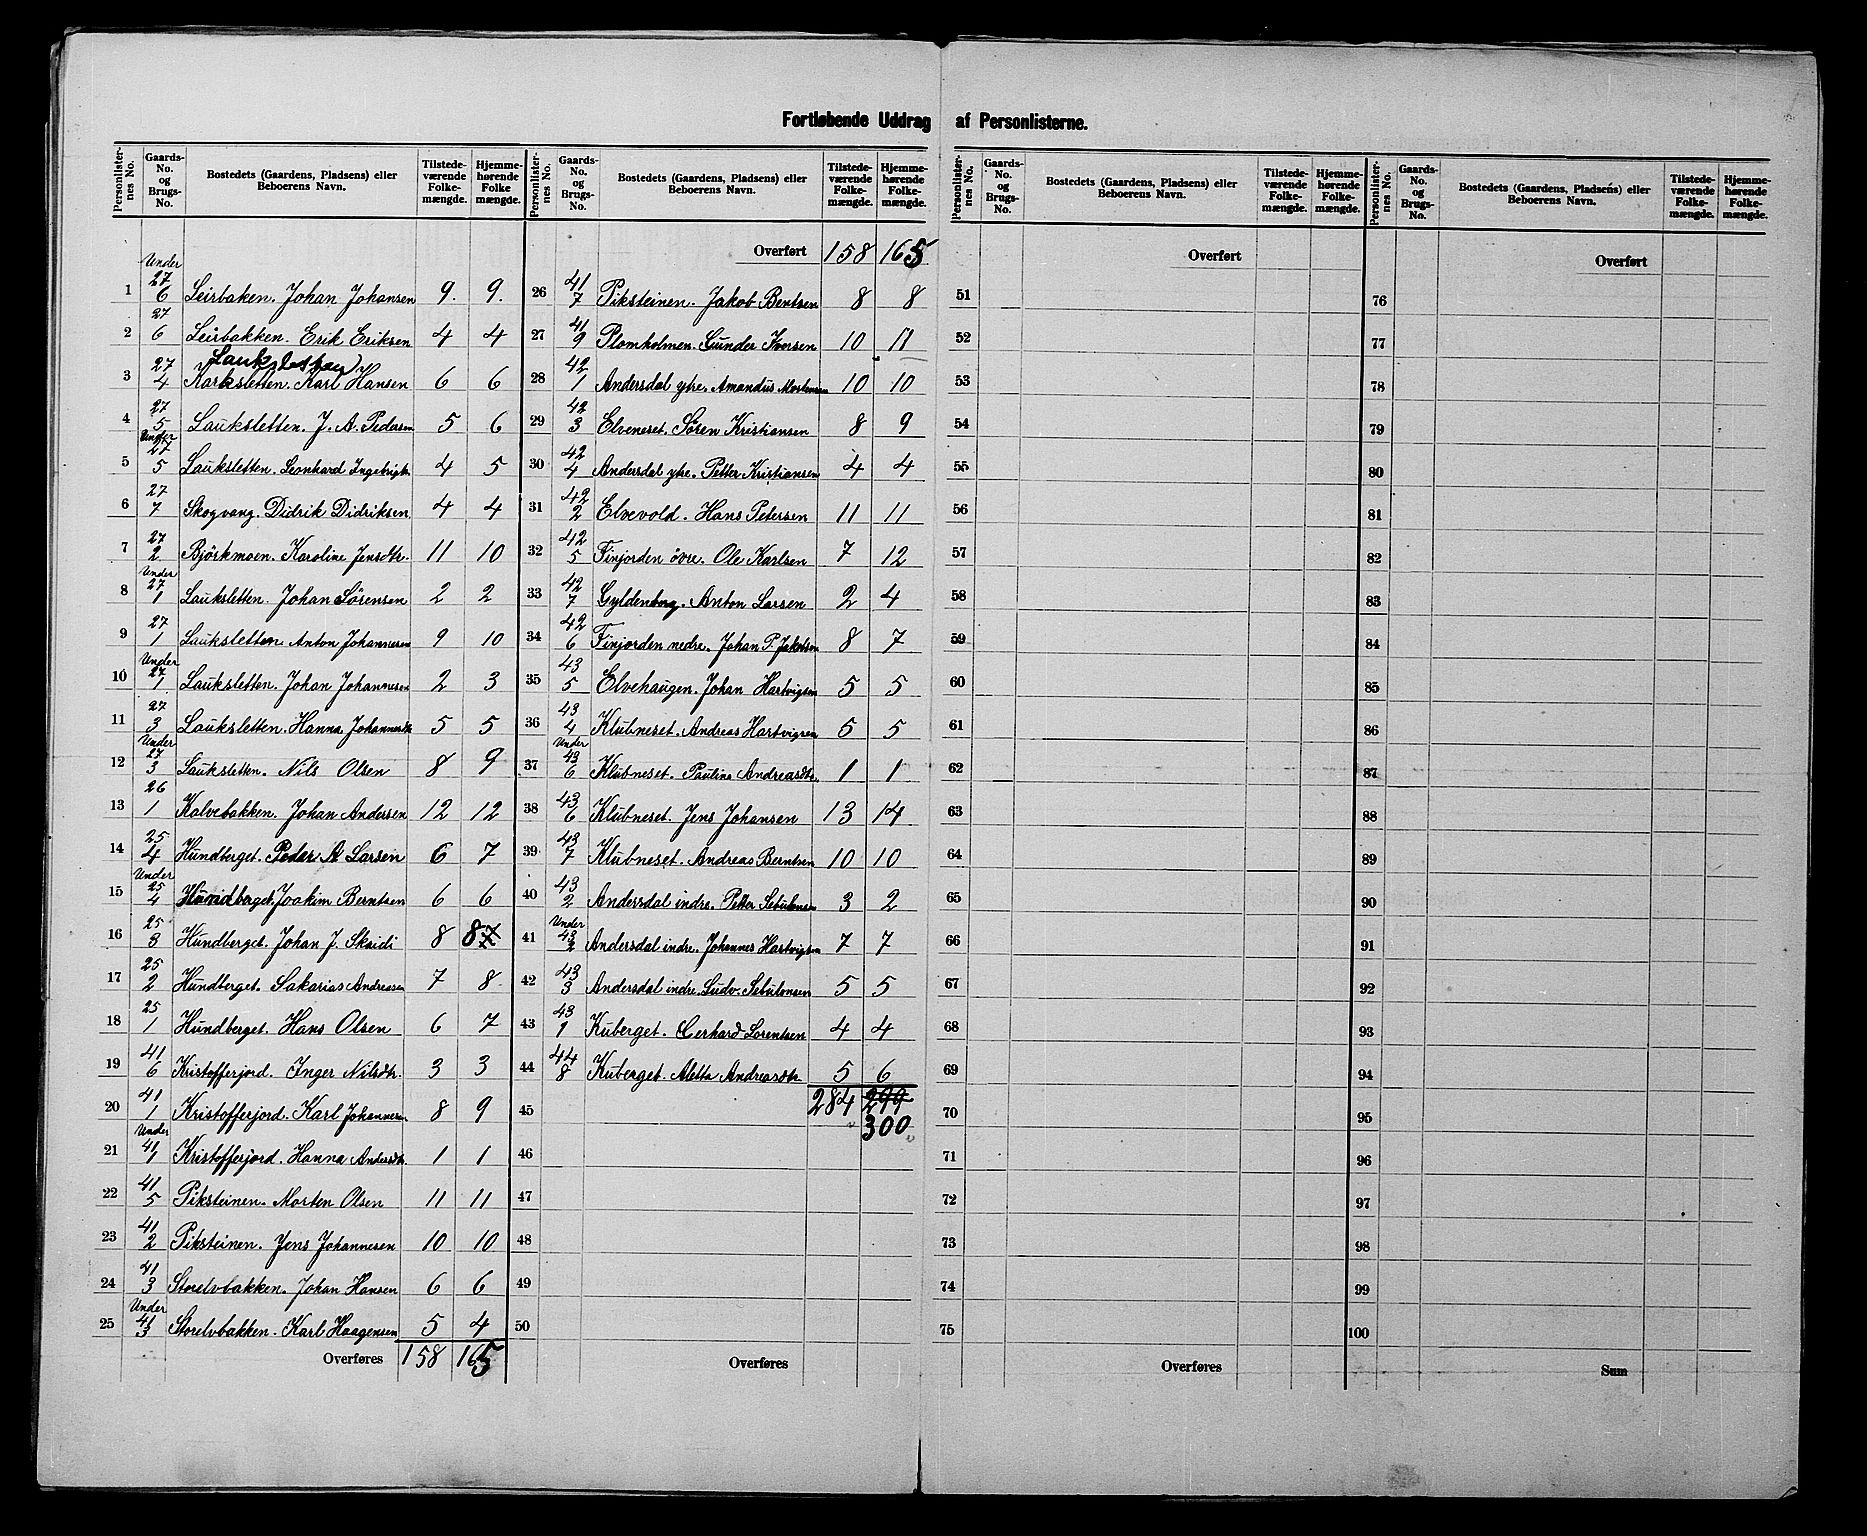 Fortløbende Uddrag af Personlisterne.
Personlister-nes No. Gaards-No. og Brugs-No. Bostedets (Gaardens, Pladsens) eller Beboerens Navn. Tilstede-værende Folke-mængde. Hjemme-hørende Folke mængde.
1 Under 27/6 Leirbakken. Johan Johansen 9. 9.
2 27/6 Leirbakken. Erik Eriksen 4 4
Lauksletten
3 27/4 Karksletten. Karl Hansen 6 6
4 27/5 Lauksletten. J. A. Pedersen 5 6
5 Under 27/5 Lauksletten. Leonhard Ingebrigts 4 5
6 27/7 Skogvang. Didrik Didriksen 4 4
7 27/2 Björkmoen. Karoline Jensdtr. 11 10
8 Under 27/1 Lauksletten. Johan Sörensen 2 2
9 27/1 Lauksletten Anton Johannesen 9 10
10 Under 27/1 Lauksletten. Johan Johannesen 2 3
11 27/3 Lauksletten. Hanna Johannesdtr 5 5
12 Under 27/3 Lauksletten. Nils Olsen 8 9
13 26/1 Kalvebakken. Johan Andersen 12 12
14 25/4 Hundberget. Peder A Larsen 6 7
15 Under 25/4 Hundberget. Joakim Berntsen 6 6
16 25/3 Hundberget. Johan J. Skaidi 8 8 7
17 25/2 Hundberget. Sakarias Andreasen 7 8
18 25/1 Hundberget. Hans Olsen 6 7
19 41/6 Kristofferjord. Inger Nilsdtr. 3 3
20 41/1 Kristofferjord. Karl Johannesen 8 9
21 Under 41/1 Kristofferjord. Hanna Andersdtr. 1 1
22 41/5 Piksteinen. Morten Olsen 11 11
23 41/2 Piksteinen. Jens Johannesen 10 10
24 41/3 Storelvbakken. Johan Hansen 6 6
25 Under 41/3 Storelvbakken. Karl Haagensen 5 4
Overføres 158 165
Personlister-nes No. Gaards-No. og Brugs-No. Bostedets (Gaardens, Pladsens) eller Beboerens Navn. Tilstede-værende Folke-mængde. Hjemme-hørende Folke-mængde.
Overført 158 165
26 41/7 Piksteinen. Jakob Bentsen 8 8
27 41/9 Plomholmen. Gunder Iversen 10 11
28 42/1 Andersdal ytre. Amandus Mortensen 10 10
29 42/3 Elveneset. Sören Kristiansen 8 9
30 42/4 Andersdal ytre. Petter Kristiansen 4 4
31 42/2 Elvevold. Hans Petersen 11 11
32 42/5 Finjorden övre. Ole Karlsen 7 12
33 42/7 Gyldenborg. Anton Larsen 2 4
34 42/6 Finjorden nedre. Johan P. Jakobsen 8 7
35 43/5 Elvehaugen. Johan Hartvigsen 5 5
36 43/4 Klubneset. Andreas Hartvigsen 5 5
37 Under 43/6 Klubneset. Paulina Andreasdtr. 1 1
38 43/6 Klubneset. Jens Johansen 13 14
39 43/7 Klubneset. Andreas Berntsen 10 10
40 43/2 Andersdal indre. Petter Sebulonsen 3 2
41 Under 43/2 Andersdal indre. Johannes Hartvigsen 7 7
42 43/3 Andersdal indre. Ludv. Sebulonsen 5 5
43 43/1 Kuberget. Gerhard Lorentsen 4 4
44 44/8 Kuberget. Aletta Andreasdtr. 5 6
45 284 299
300
46
47
48
49
50
Overføres
Personlister-nes No. Gaards-No. og Brugs-No. Bostedets (Gaardens, Pladsens) eller Beboerens Navn. Tilstede-værende Folke-mængde. Hjemme-hørende Folke-mængde.
Overført
51
52
53
54
55
56
57
58
59
60
61
62
63
64
65
66
67
68
69
70
71
72
73
74
75
Overføres
Personlister-nes No. Gaards-No. og Brugs-No. Bostedets (Gaardens, Pladsens) eller Beboerens Navn. Tilstede-værende Folke-mængde. Hjemme-hørende Folke-mængde.
Overført
76
77
78
79
80
81
82
83
84
85
86
87
88
89
90
91
92
93
94
95
96
97
98
99
100
Sum